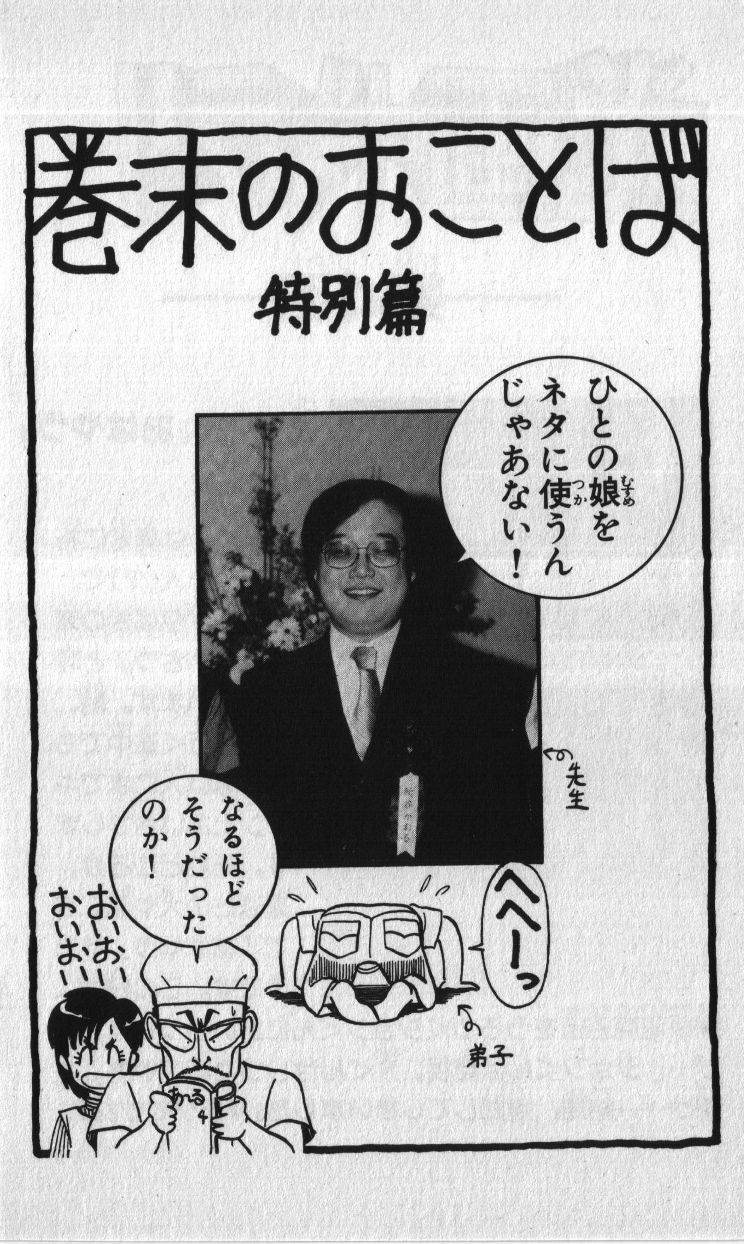 巻末のおことば
特別篇
ひとの娘を
ネタに使うん
じゃあない！
むすめ
つか
先生
なるほど
そうだった
のか！
へへーっ
弟子
おいおい
おいおい
あ〜る
4